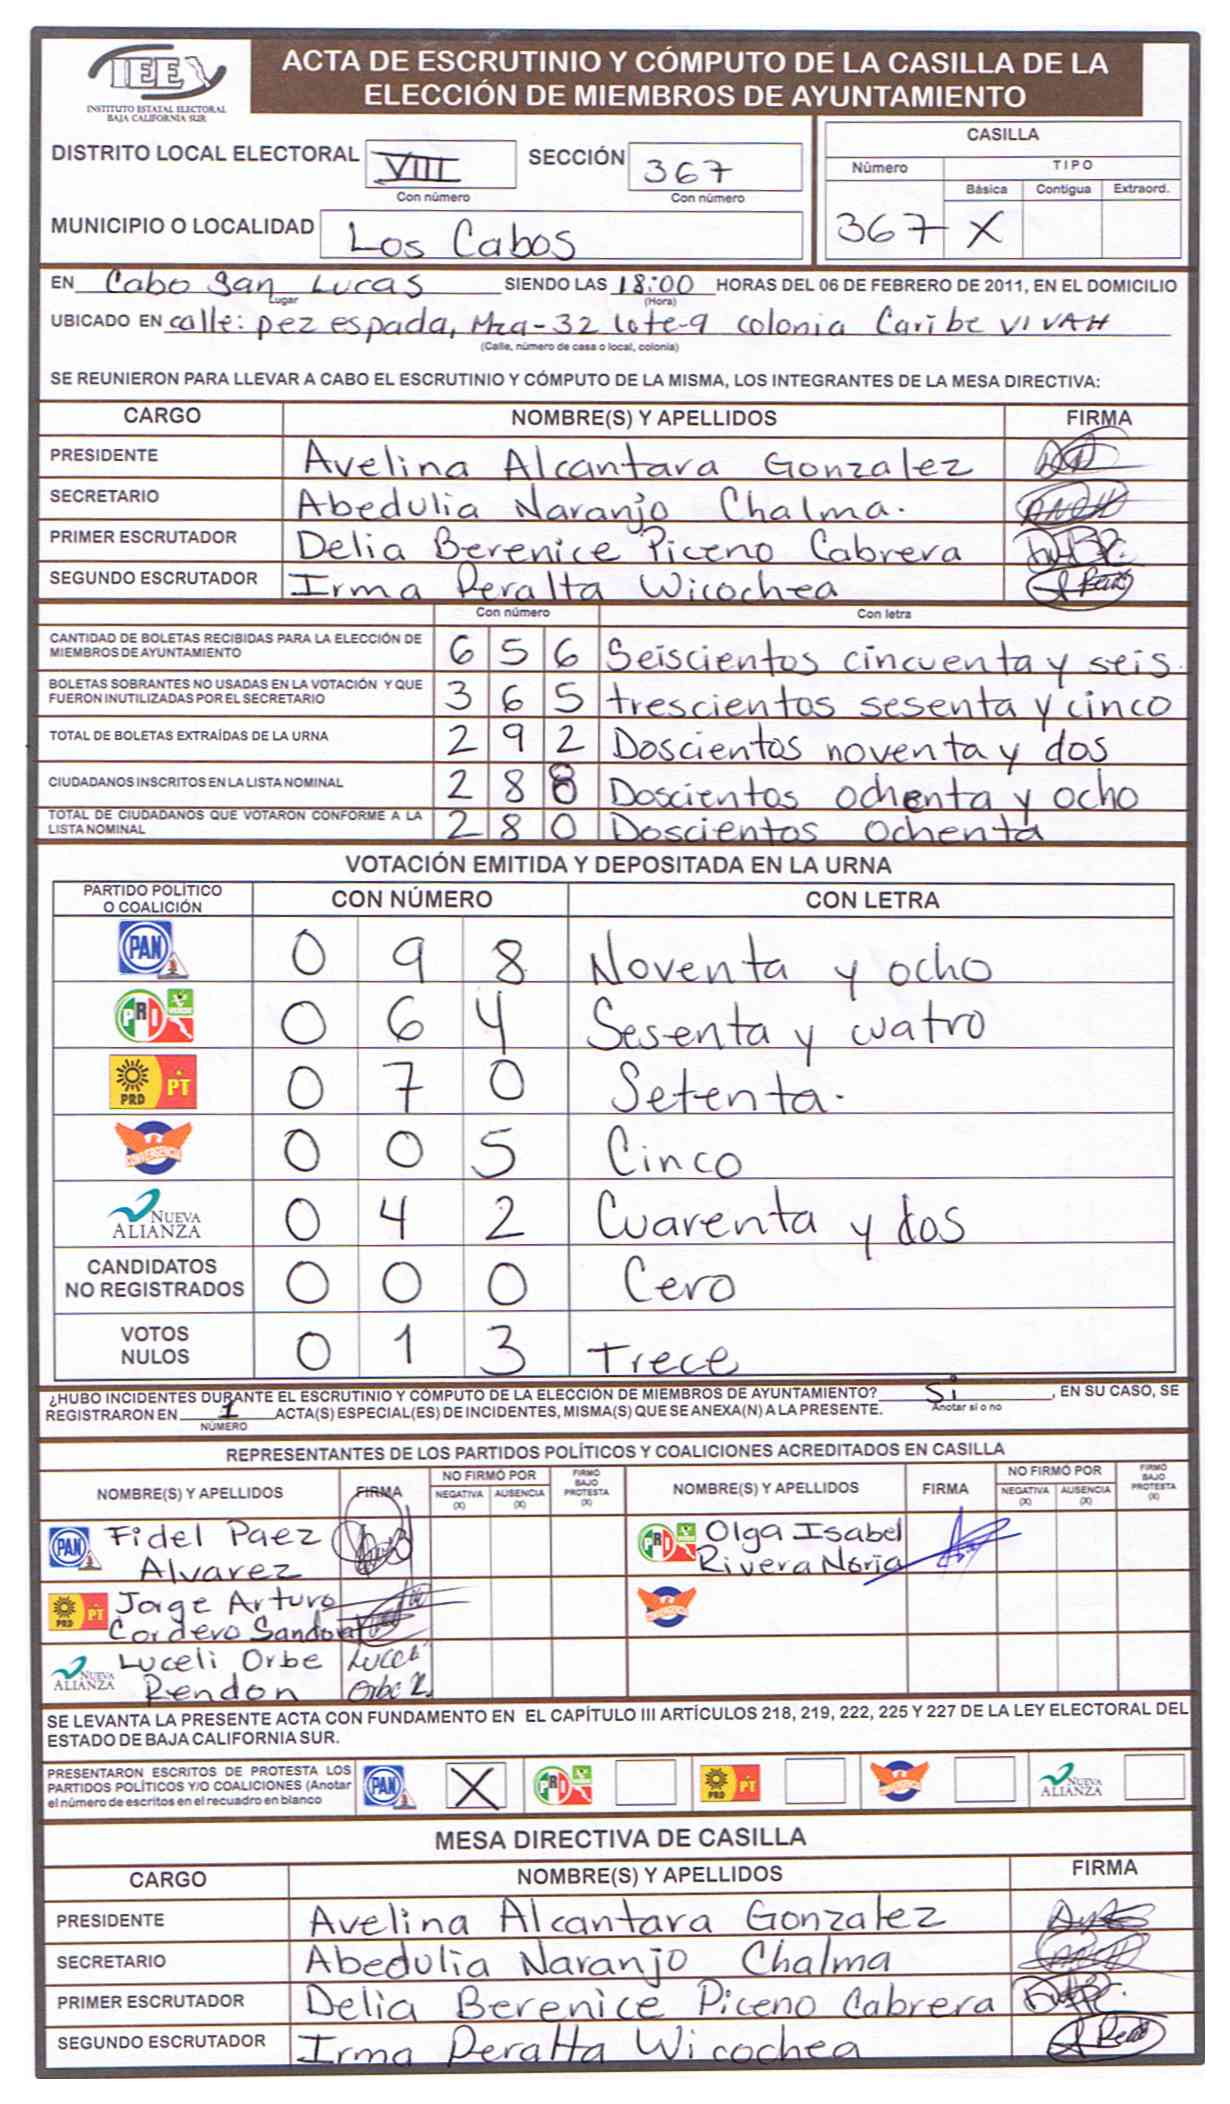 IEE
INSTITUTO ESTATAL ELECTORAL
BAJA CALIFORNIA SUR
ACTA DE ESCRUTINIO Y CÓMPUTO DE LA CASILLA DE LA
ELECCIÓN DE MIEMBROS DE AYUNTAMIENTO
DISTRITO LOCAL ELECTORAL VIII SECCIÓN 367
Con número Con número
MUNICIPIO O LOCALIDAD Los Cabos
CASILLA
Número TIPO
Básica Contigua Extraord.
367 X
EN Cabo San Lucas SIENDO LAS 18:00 HORAS DEL 06 DE FEBRERO DE 2011, EN EL DOMICILIO
Lugar (Hora)
UBICADO EN calle: pez espada, Mza-32 lote-9 colonia Caribe VIVAH
(Calle, número de casa o local, colonia)
SE REUNIERON PARA LLEVAR A CABO EL ESCRUTINIO Y CÓMPUTO DE LA MISMA, LOS INTEGRANTES DE LA MESA DIRECTIVA:
CARGO NOMBRE(S) Y APELLIDOS FIRMA
PRESIDENTE Avelina Alcantara Gonzalez
SECRETARIO Abedulia Naranjo Chalma.
PRIMER ESCRUTADOR Delia Berenice Piceno Cabrera
SEGUNDO ESCRUTADOR Irma Peralta Wicochea
Con número Con letra
CANTIDAD DE BOLETAS RECIBIDAS PARA LA ELECCIÓN DE
MIEMBROS DE AYUNTAMIENTO 6 5 6 Seiscientos cincuenta y seis.
BOLETAS SOBRANTES NO USADAS EN LA VOTACIÓN Y QUE
FUERON INUTILIZADAS POR EL SECRETARIO 3 6 5 trescientos sesenta y cinco
TOTAL DE BOLETAS EXTRAÍDAS DE LA URNA 2 9 2 Doscientos noventa y dos
CIUDADANOS INSCRITOS EN LA LISTA NOMINAL 2 8 8 Doscientos ochenta y ocho
TOTAL DE CIUDADANOS QUE VOTARON CONFORME A LA
LISTA NOMINAL 2 8 0 Doscientos ochenta
VOTACIÓN EMITIDA Y DEPOSITADA EN LA URNA
PARTIDO POLÍTICO
O COALICIÓN CON NÚMERO CON LETRA
PAN 0 9 8 Noventa y ocho
PRI VERDE 0 6 4 Sesenta y cuatro
PRD PT 0 7 0 Setenta.
CONVERGENCIA 0 0 5 Cinco
NUEVA ALIANZA 0 4 2 Cuarenta y dos
CANDIDATOS
NO REGISTRADOS 0 0 0 Cero
VOTOS
NULOS 0 1 3 Trece
¿HUBO INCIDENTES DURANTE EL ESCRUTINIO Y CÓMPUTO DE LA ELECCIÓN DE MIEMBROS DE AYUNTAMIENTO? Si, EN SU CASO, SE
Anotar si o no
REGISTRARON EN 1 ACTA(S) ESPECIAL(ES) DE INCIDENTES, MISMA(S) QUE SE ANEXA(N) A LA PRESENTE.
NÚMERO
REPRESENTANTES DE LOS PARTIDOS POLÍTICOS Y COALICIONES ACREDITADOS EN CASILLA
NOMBRE(S) Y APELLIDOS FIRMA NO FIRMÓ POR NEGATIVA (X) AUSENCIA (X) FIRMÓ BAJO PROTESTA (X) NOMBRE(S) Y APELLIDOS FIRMA NO FIRMÓ POR NEGATIVA (X) AUSENCIA (X) FIRMÓ BAJO PROTESTA (X)
PAN Fidel Paez
Alvarez
PRI VERDE Olga Isabel
Rivera Noria
PRD PT Jorge Arturo
Cordero Sandoval
CONVERGENCIA
NUEVA ALIANZA Luceli Orbe
Rendon
Luceli
Orbe R.
SE LEVANTA LA PRESENTE ACTA CON FUNDAMENTO EN EL CAPÍTULO III ARTÍCULOS 218, 219, 222, 225 Y 227 DE LA LEY ELECTORAL DEL
ESTADO DE BAJA CALIFORNIA SUR.
PRESENTARON ESCRITOS DE PROTESTA LOS
PARTIDOS POLÍTICOS Y/O COALICIONES (Anotar
el número de escritos en el recuadro en blanco
PAN X PRI VERDE PRD PT CONVERGENCIA NUEVA ALIANZA
MESA DIRECTIVA DE CASILLA
CARGO NOMBRE(S) Y APELLIDOS FIRMA
PRESIDENTE Avelina Alcantara Gonzalez
SECRETARIO Abedulia Naranjo Chalma
PRIMER ESCRUTADOR Delia Berenice Piceno Cabrera
SEGUNDO ESCRUTADOR Irma Peralta Wicochea